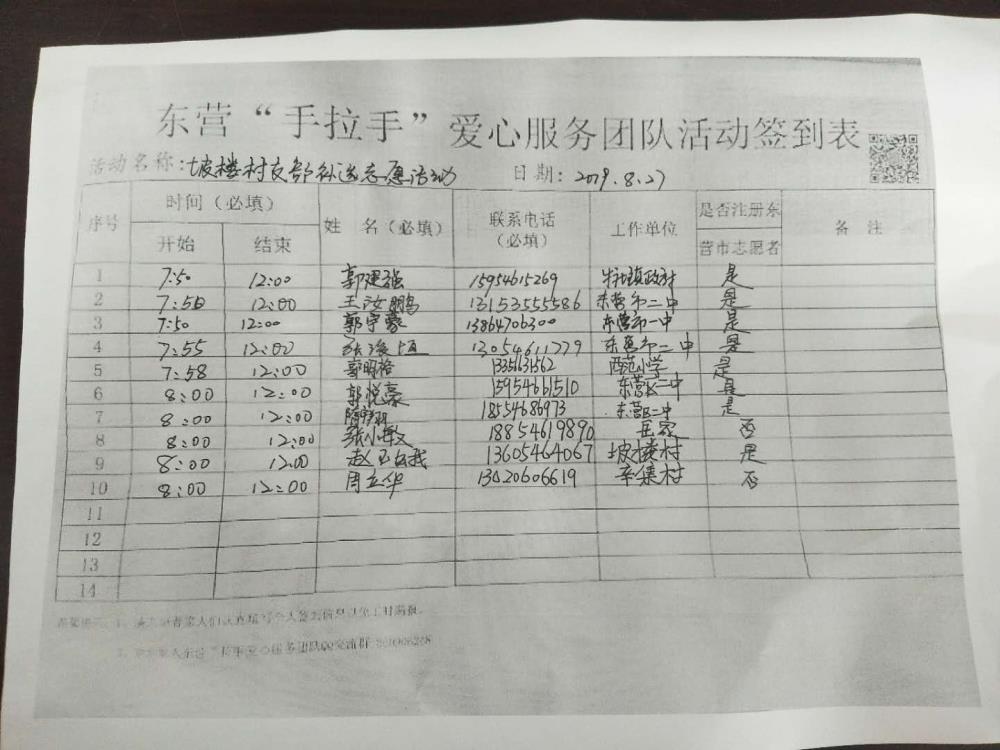 东营“手拉手”爱心服务团队活动签到表
活动名称:坡楼村支部 志愿活动 日期: 2019.8.27
序号 时间(必填) 姓 名(必填) 联系电话(必填) 工作单位 是否注册东营市志愿者 备 注
开始 结束
1 7:50 12:00 郭建强 15954615269 政府 是
2 7:50 12:00 王汝鹏 13153555586 东营市二中 是
3 7:50 12:00 郭宇豪 13864706300 东营市一中 是
4 7:55 12:00 张 恒 13054611779 东营市二中 是
5 7:58 12:00 郭明格 13351631562 西范小学 是
6 8:00 12:00 郭悦豪 15954661510 东营区二中 是
7 8:00 12:00 18554686973 东营区二中 是
8 8:00 12:00 张小敏 18854619890 否
9 8:00 12:00 赵 13605464067 坡楼村 是
10 8:00 12:00 周立华 13420606619 辛集村 否
11
12
13
14